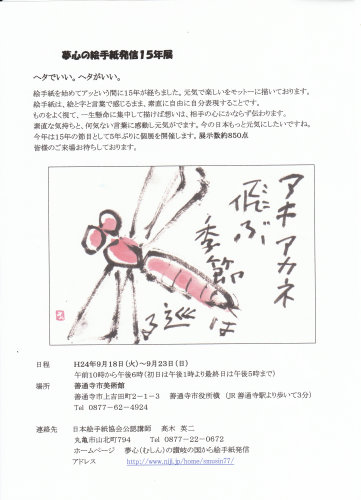 夢心の絵手紙発信15年展
ヘタでいい。ヘタがいい。
絵手紙を始めてアッという間に15年が経ちました。元気で楽しいをモットーに描いております。
絵手紙は、絵と字と言葉で感じるまま、素直に自由に自分表現することです。
ものをよく視て、一生懸命に集中して描けば想いは、相手の心にかならず伝わります。
素直な気持ちと、何気ない言葉に感動し元気がでます。今の日本もっと元気にしたいですね。
今年は15年の節目として5年ぶりに個展を開催します。展示数約850点
皆様のご来場お待ちしております。
アキアカネ
飛ぶ
季節は
巡る
日程 H24年9月18日(火)～9月23日(日)
午前10時から午後6時(初日は午後1時より最終日は午後5時まで)
場所 善通寺市美術館
善通寺市上吉田町2－1－3 善通寺市役所横 (JR善通寺駅より歩いて3分)
Tel 0877－62－4924
連絡先 日本絵手紙協会公認講師 高木 英二
丸亀市山北町794 Tel 0877－22－0672
ホームページ 夢心(むしん)の讃岐の国から絵手紙発信
アドレス http://www.niji.jp/home/smusin77/